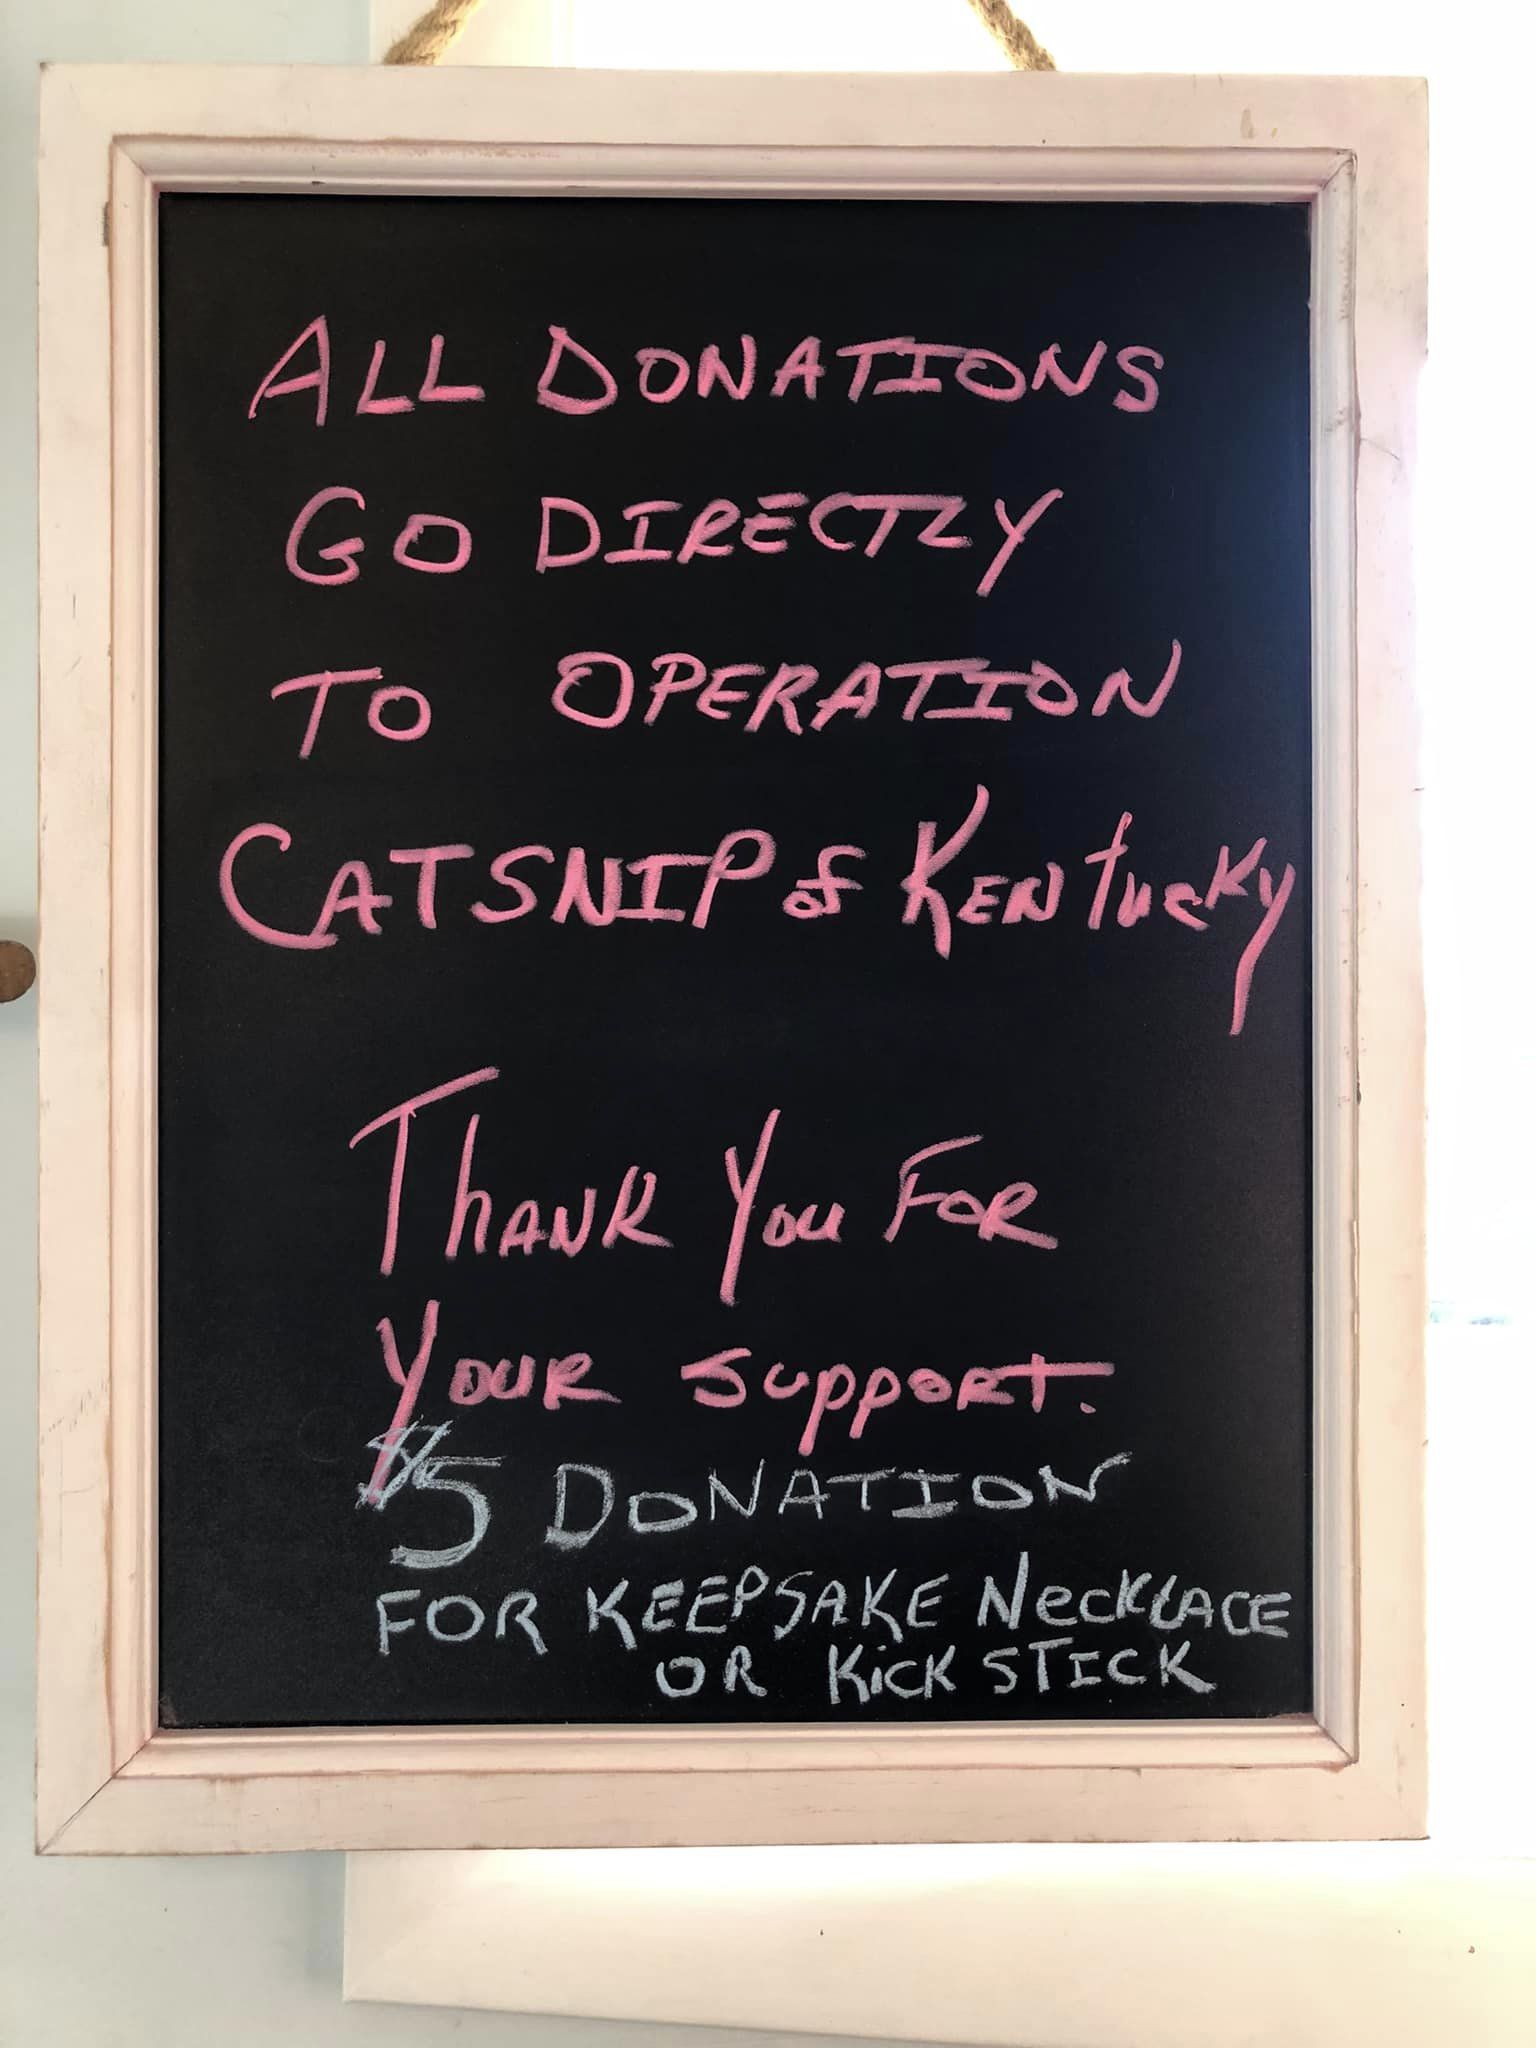 ALL DONATIONS
GO DIRECTLY
TO OPERATION
CATSNIP of KENtucky
ThANK You FOR
YOUR SUPPORT.
$5 DONATION
FOR KEEPSAKE NecKLACE
OR KicK STICK